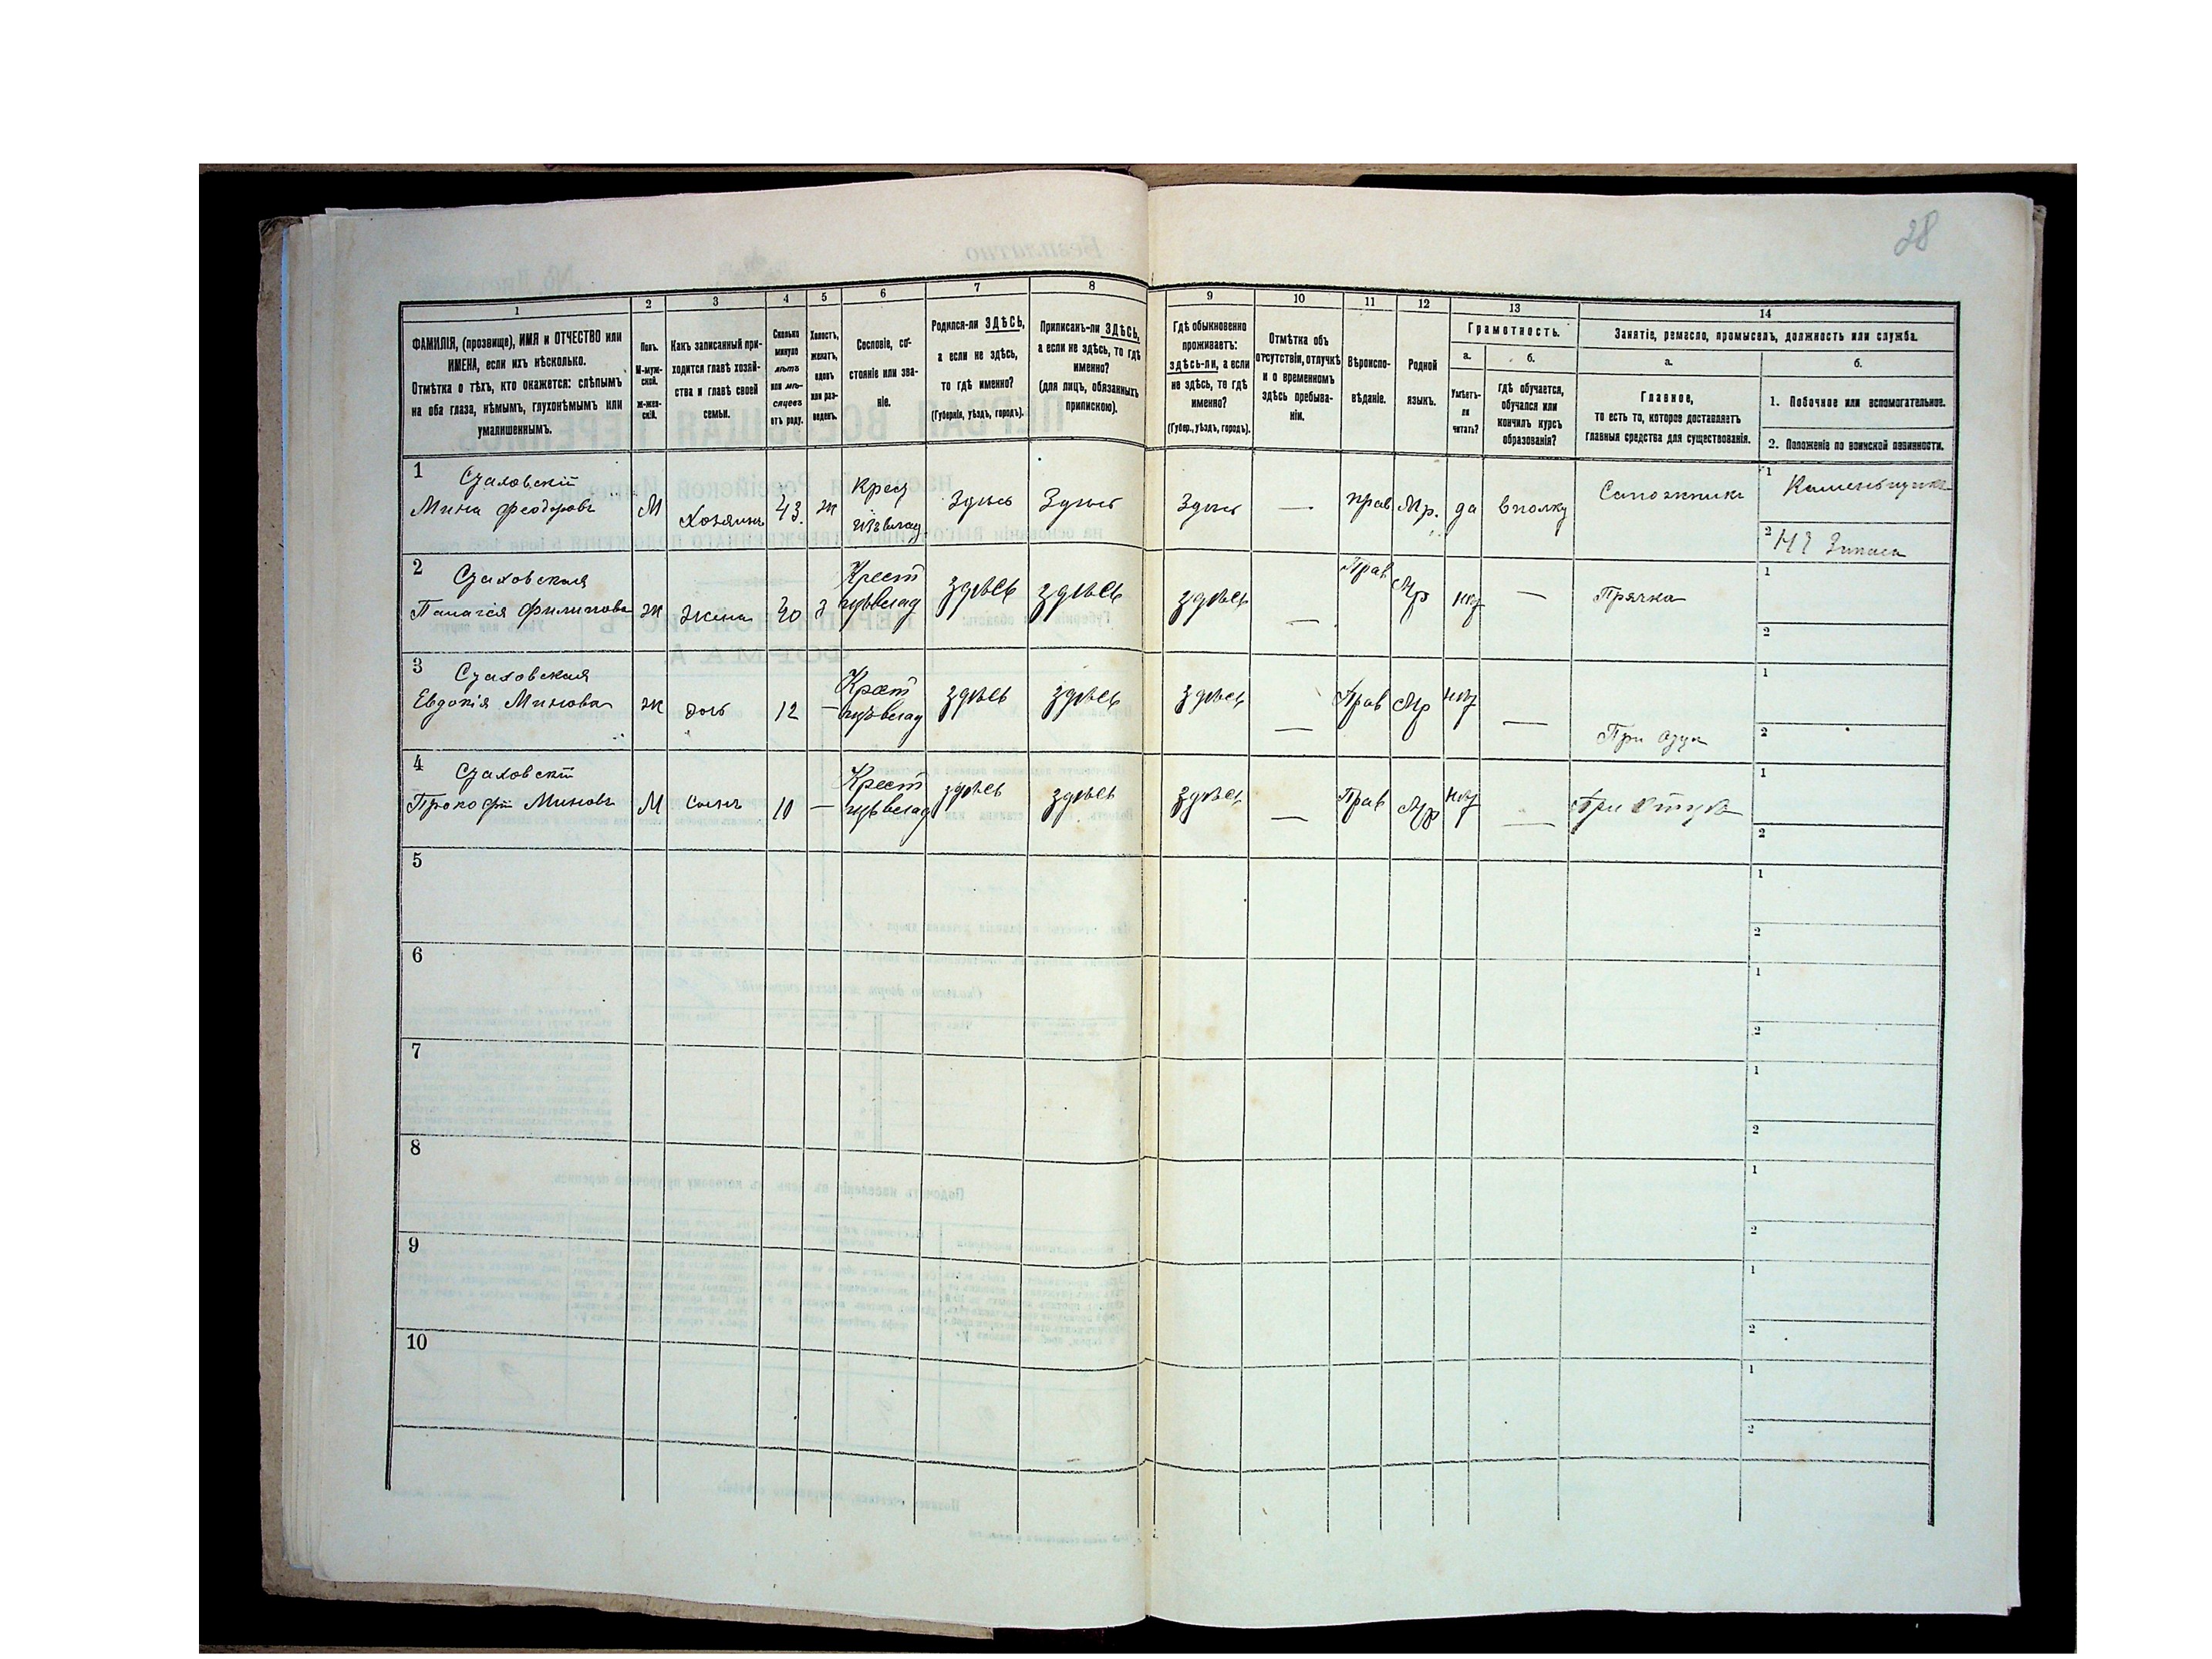 28
1 2 3 4 5 6 7 8 9 10 11 12 13 14
ФАМИЛІЯ, (прозвище), ИМЯ и ОТЧЕСТВО или
ИМЕНА, если ихъ нѣсколько.
Отмѣтка о тѣхъ, кто окажется: слѣпымъ
на оба глаза, нѣмымъ, глухонѣмымъ или
умалишеннымъ.
Полъ.
М-муж-
ской.
ж-жен-
скій.
Какъ записанный при-
ходится главѣ хозяй-
ства и главѣ своей
семьи.
Сколько
минуло
лѣтъ
или мѣ-
сяцевъ
отъ роду.
Холостъ,
женатъ,
вдовъ
или раз-
веденъ.
Сословіе, со-
стояніе или зва-
ніе.
Родился-ли ЗДѢСЬ,
а если не здѣсь,
то гдѣ именно?
(Губернія, уѣздъ, городъ).
Приписанъ-ли ЗДѢСЬ,
а если не здѣсь, то гдѣ
именно?
(для лицъ, обязанныхъ
припискою).
Гдѣ обыкновенно
проживаетъ:
здѣсь-ли, а если
не здѣсь, то гдѣ
именно?
(Губер., уѣздъ, городъ).
Отмѣтка объ
отсутствіи, отлучкѣ
и о временномъ
здѣсь пребыва-
ніи.
Вѣроиспо-
вѣданіе.
Родной
языкъ.
Грамотность.
а.
Умѣетъ-
ли
читать?
б.
Гдѣ обучается,
обучался или
кончилъ курсъ
образованія?
Занятіе, ремесло, промыселъ, должность или служба.
а.
Главное,
то есть то, которое доставляетъ
главныя средства для существованія.
б.
1. Побочное или вспомогательное.
2. Положеніе по воинской повинности.
1 Стаховскій
Мина Феодоровъ М Хозяинъ 43. ж Крест
изъ влад Здѣсь Здѣсь Здѣсь — прав Мр. да в полку Сапожникъ 1 Каменьщикъ
2
2 Стаховская
Палагія Филипова ж жена 40 з Крест
изъ влад здѣсь здѣсь здѣсь — Прав Мр нѣт — Прячка 1
2
3 Стаховская
Евдокія Минова ж дочь 12 — Крест
изъ влад здѣсь здѣсь здѣсь — Прав Мр нѣт — При отцѣ 1
2
4 Стаховскій
Прокофій Миновъ М сынъ 10 — Крест
изъ влад здѣсь здѣсь здѣсь — Прав Мр нѣт — При отцѣ 1
2
5 1
2
6 1
2
7 1
2
8 1
2
9 1
2
10 1
2